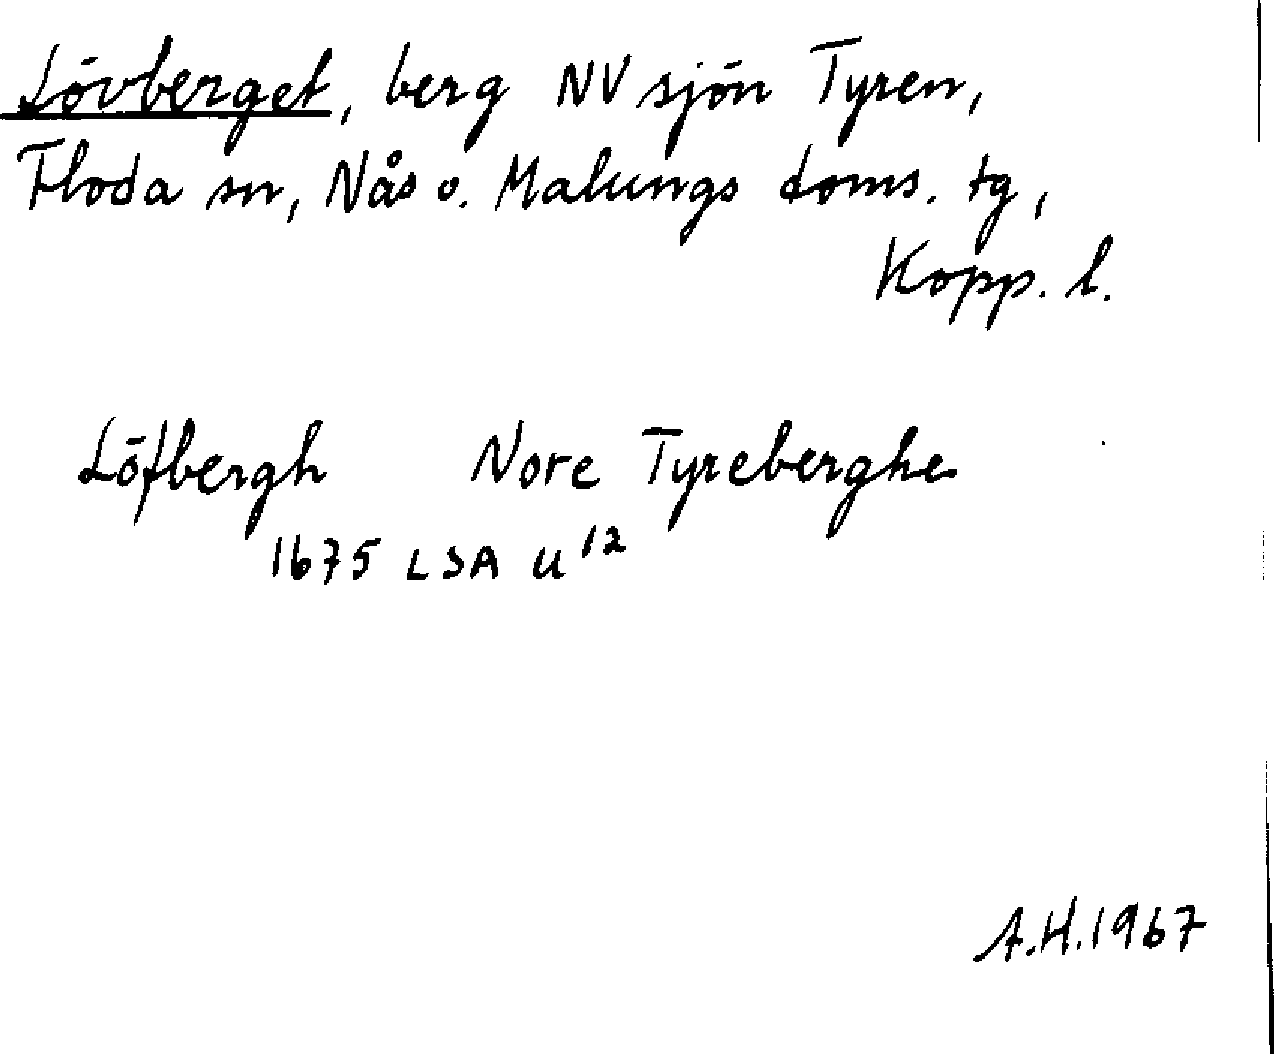 Lövberget, berg NV sjön Tyren,
Floda sn, Nås o. Malungs doms. tg,
Kopp. l.
Löfbergh Nore Tyreberghe
1675 LSA U12
A.H. 1967